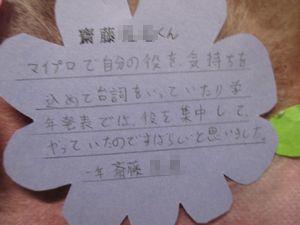 齋藤 くん
マイプロで自分の役を、気持ちを
込めて台詞をいっていたり学
年発表では、役を集中して、
やっていたのですばらしいと思いました。
一年 斎藤